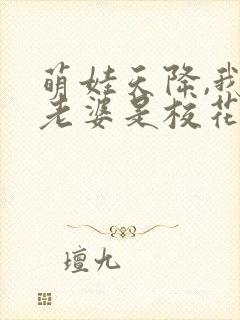 萌娃天降,我
老婆是校花
壇九